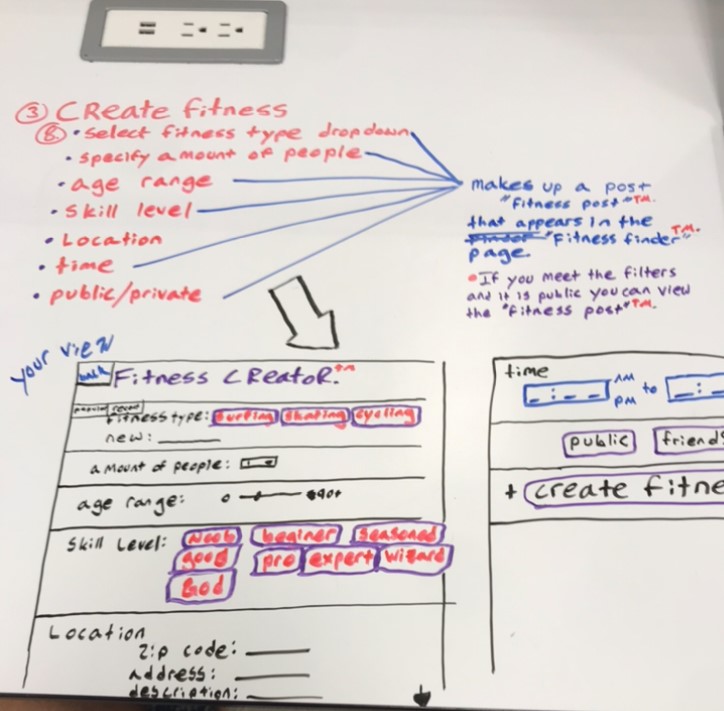 ③ Create fitness
⑧ • select fitness type dropdown
• specify amount of people
• age range
• skill level
• Location
• time
• public/private
makes up a post
"fitness post"™.
that appears in the
"Fitness finder"™.
page.
• If you meet the filters
and it is public you can view
the "fitness post"™.
your view
back Fitness CReatoR.™
popular recent
fitness type: surfing skating cycling
new:
amount of people:
age range: 0 90+
skill Level: Noob beginer seasoned
good pro expert wizard
God
Location
zip code:
address:
description:
time
_:__ AM PM to _:
public friends
+ create fitne